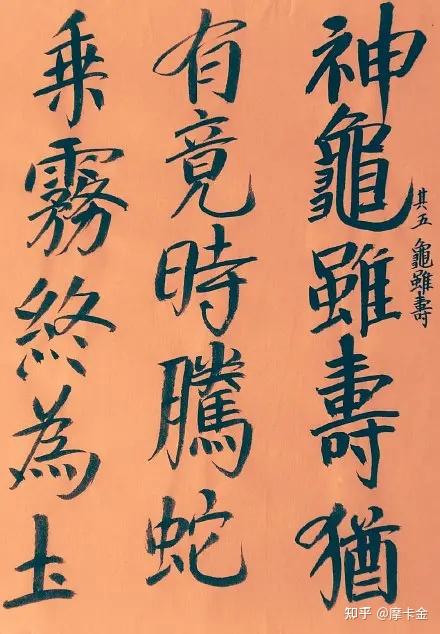 神龜雖壽猶
其五 龜雖壽
有竟時騰蛇
乘霧終為土
知乎 @摩卡金